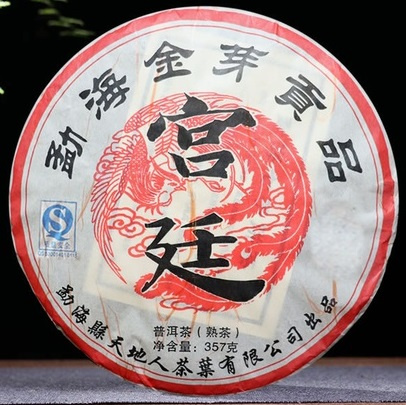 勐海金芽貢品
宫廷
普洱茶（熟茶）
净含量：357克
勐海縣天地人茶葉有限公司出品